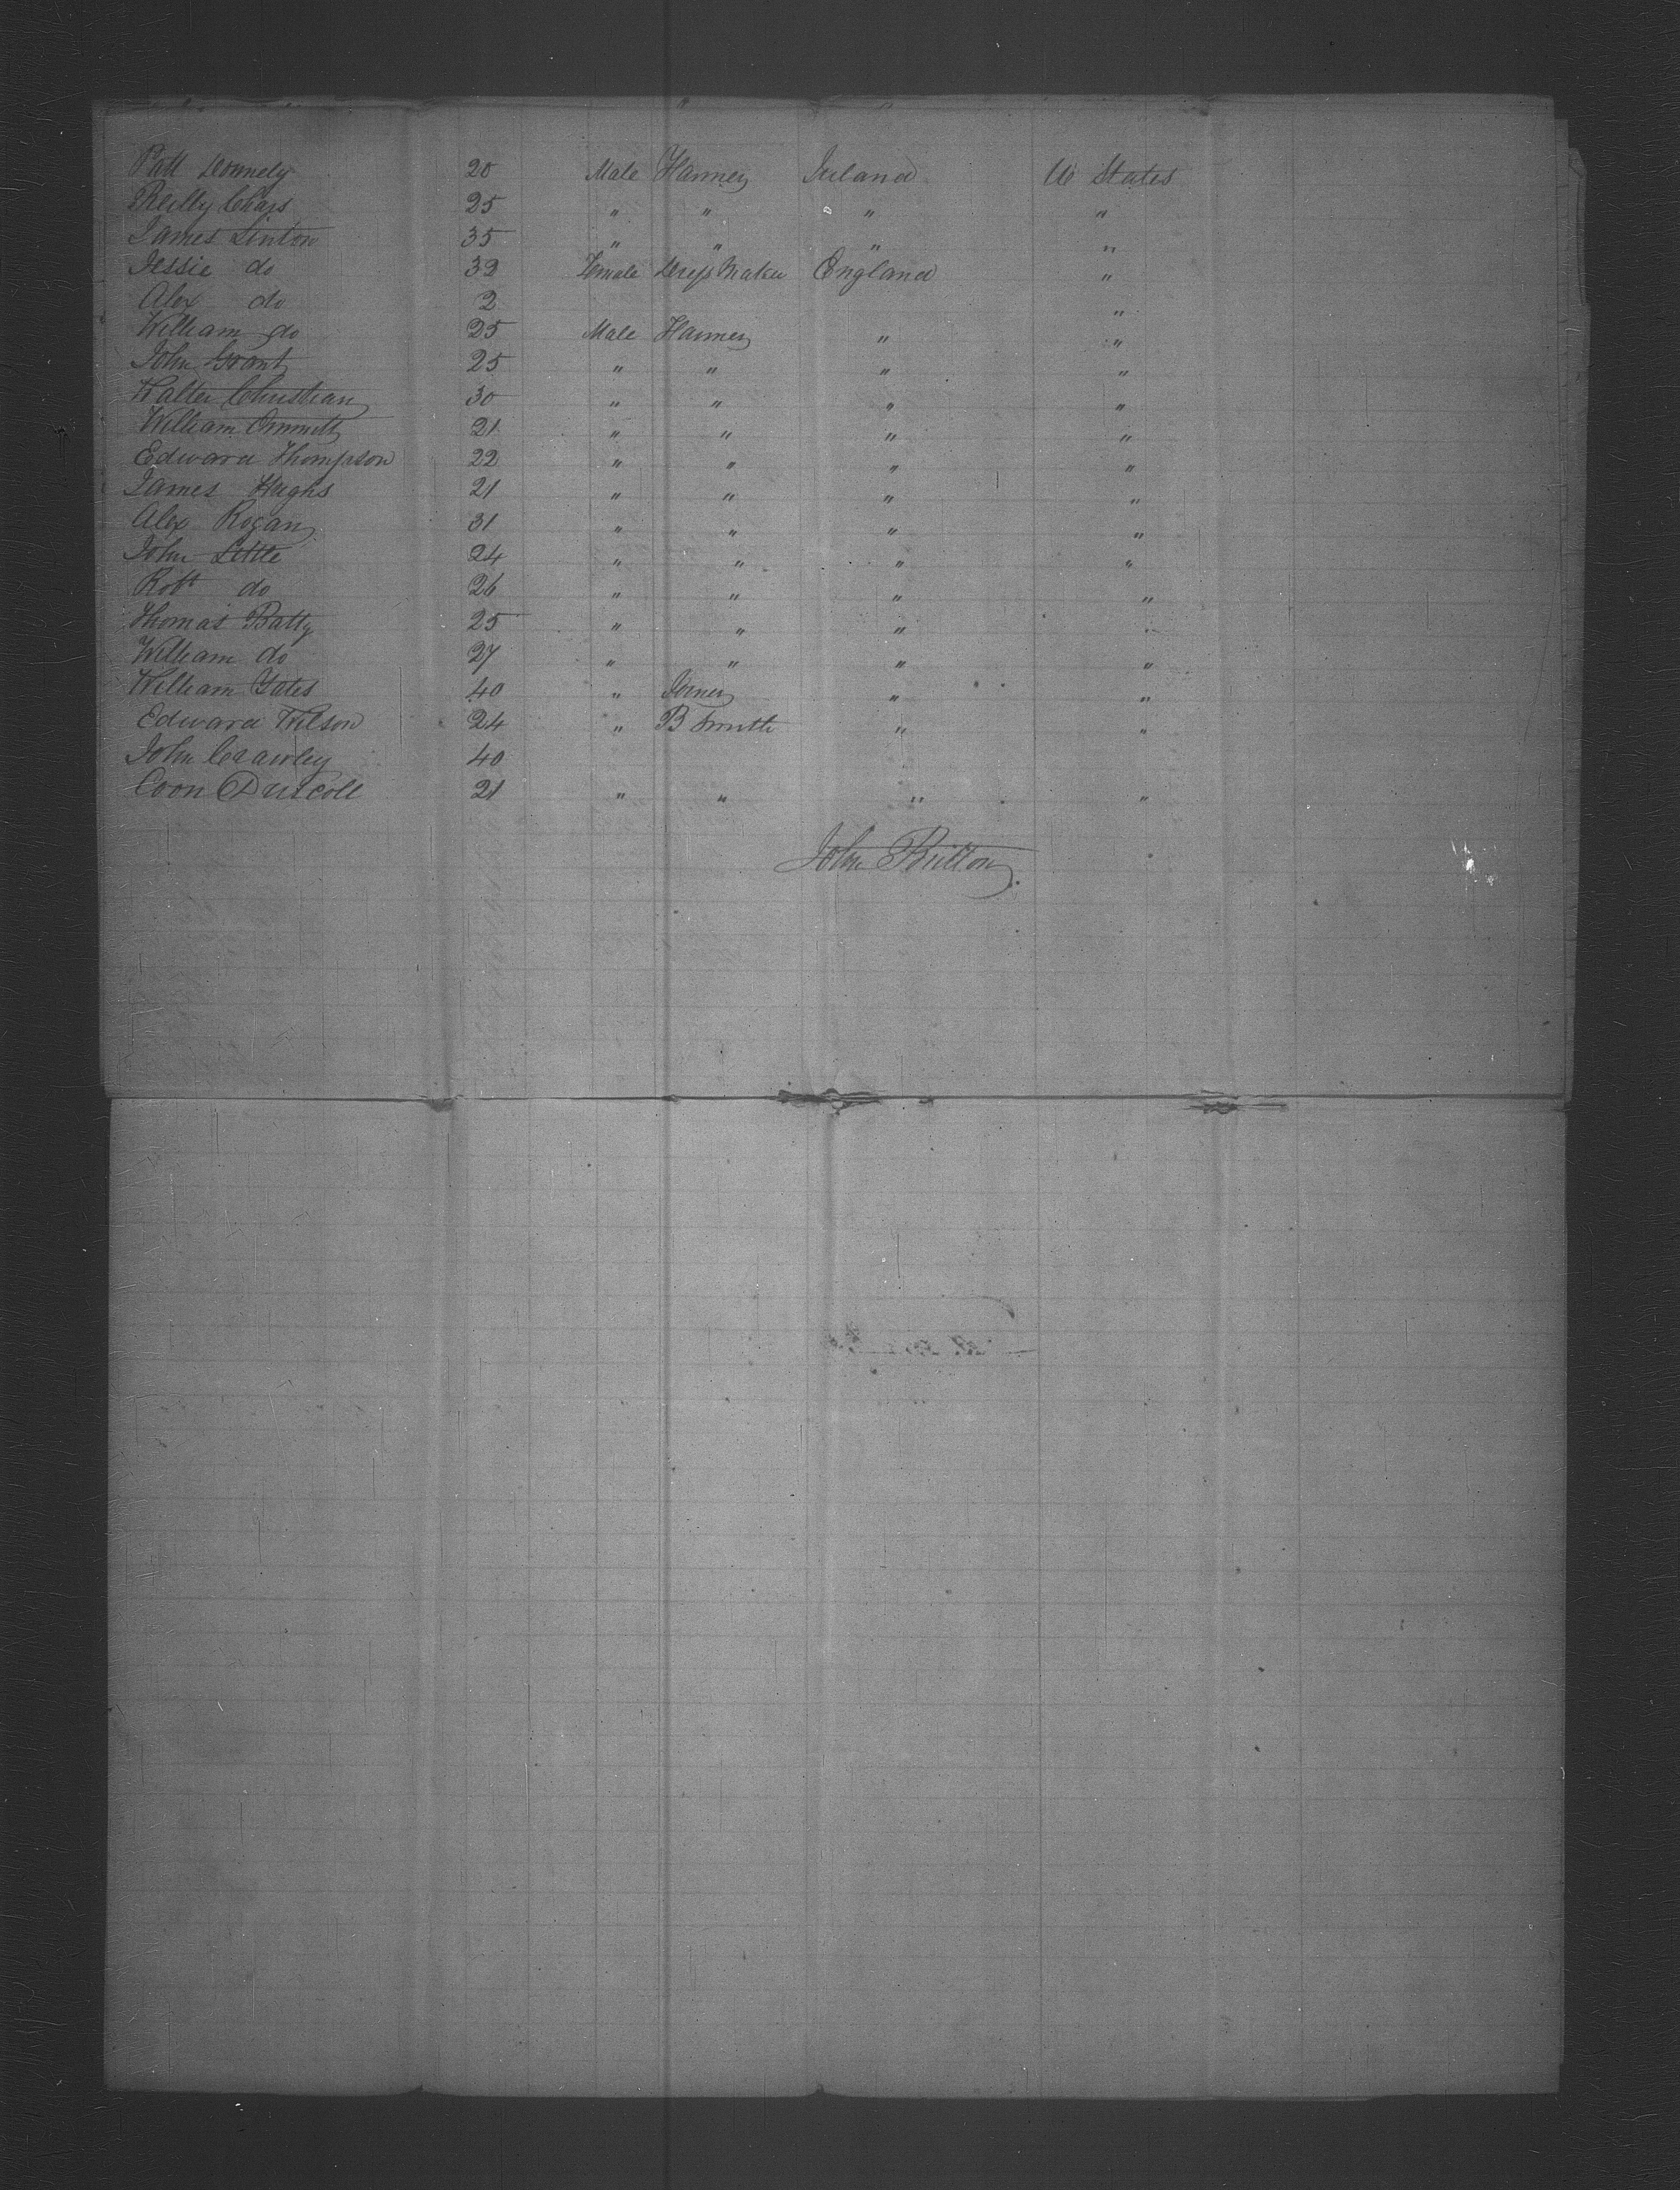 Patt Donnely 20 Male Farmer Ireland U States
Reilly Chars 25 " " " "
James Linton 35 " " " "
Jessie do 32 Female Dress Maker England "
Alex do 2 "
William do 25 Male Farmer " "
John Grant 25 " " " "
Walter Christian 30 " " " "
William Emmett 21 " " " "
Edward Thompson 22 " " " "
James Hughs 21 " " " "
Alex Rogan 31 " " " "
John Little 24 " " " "
Robt do 26 " " " "
Thomas Batty 25 " " " "
William do 27 " " " "
William Yates 40 " Joiner " "
Edward Wilson 24 " B Smith " "
John Crawley 40
Coon Driscoll 21 " " " "
John Britton